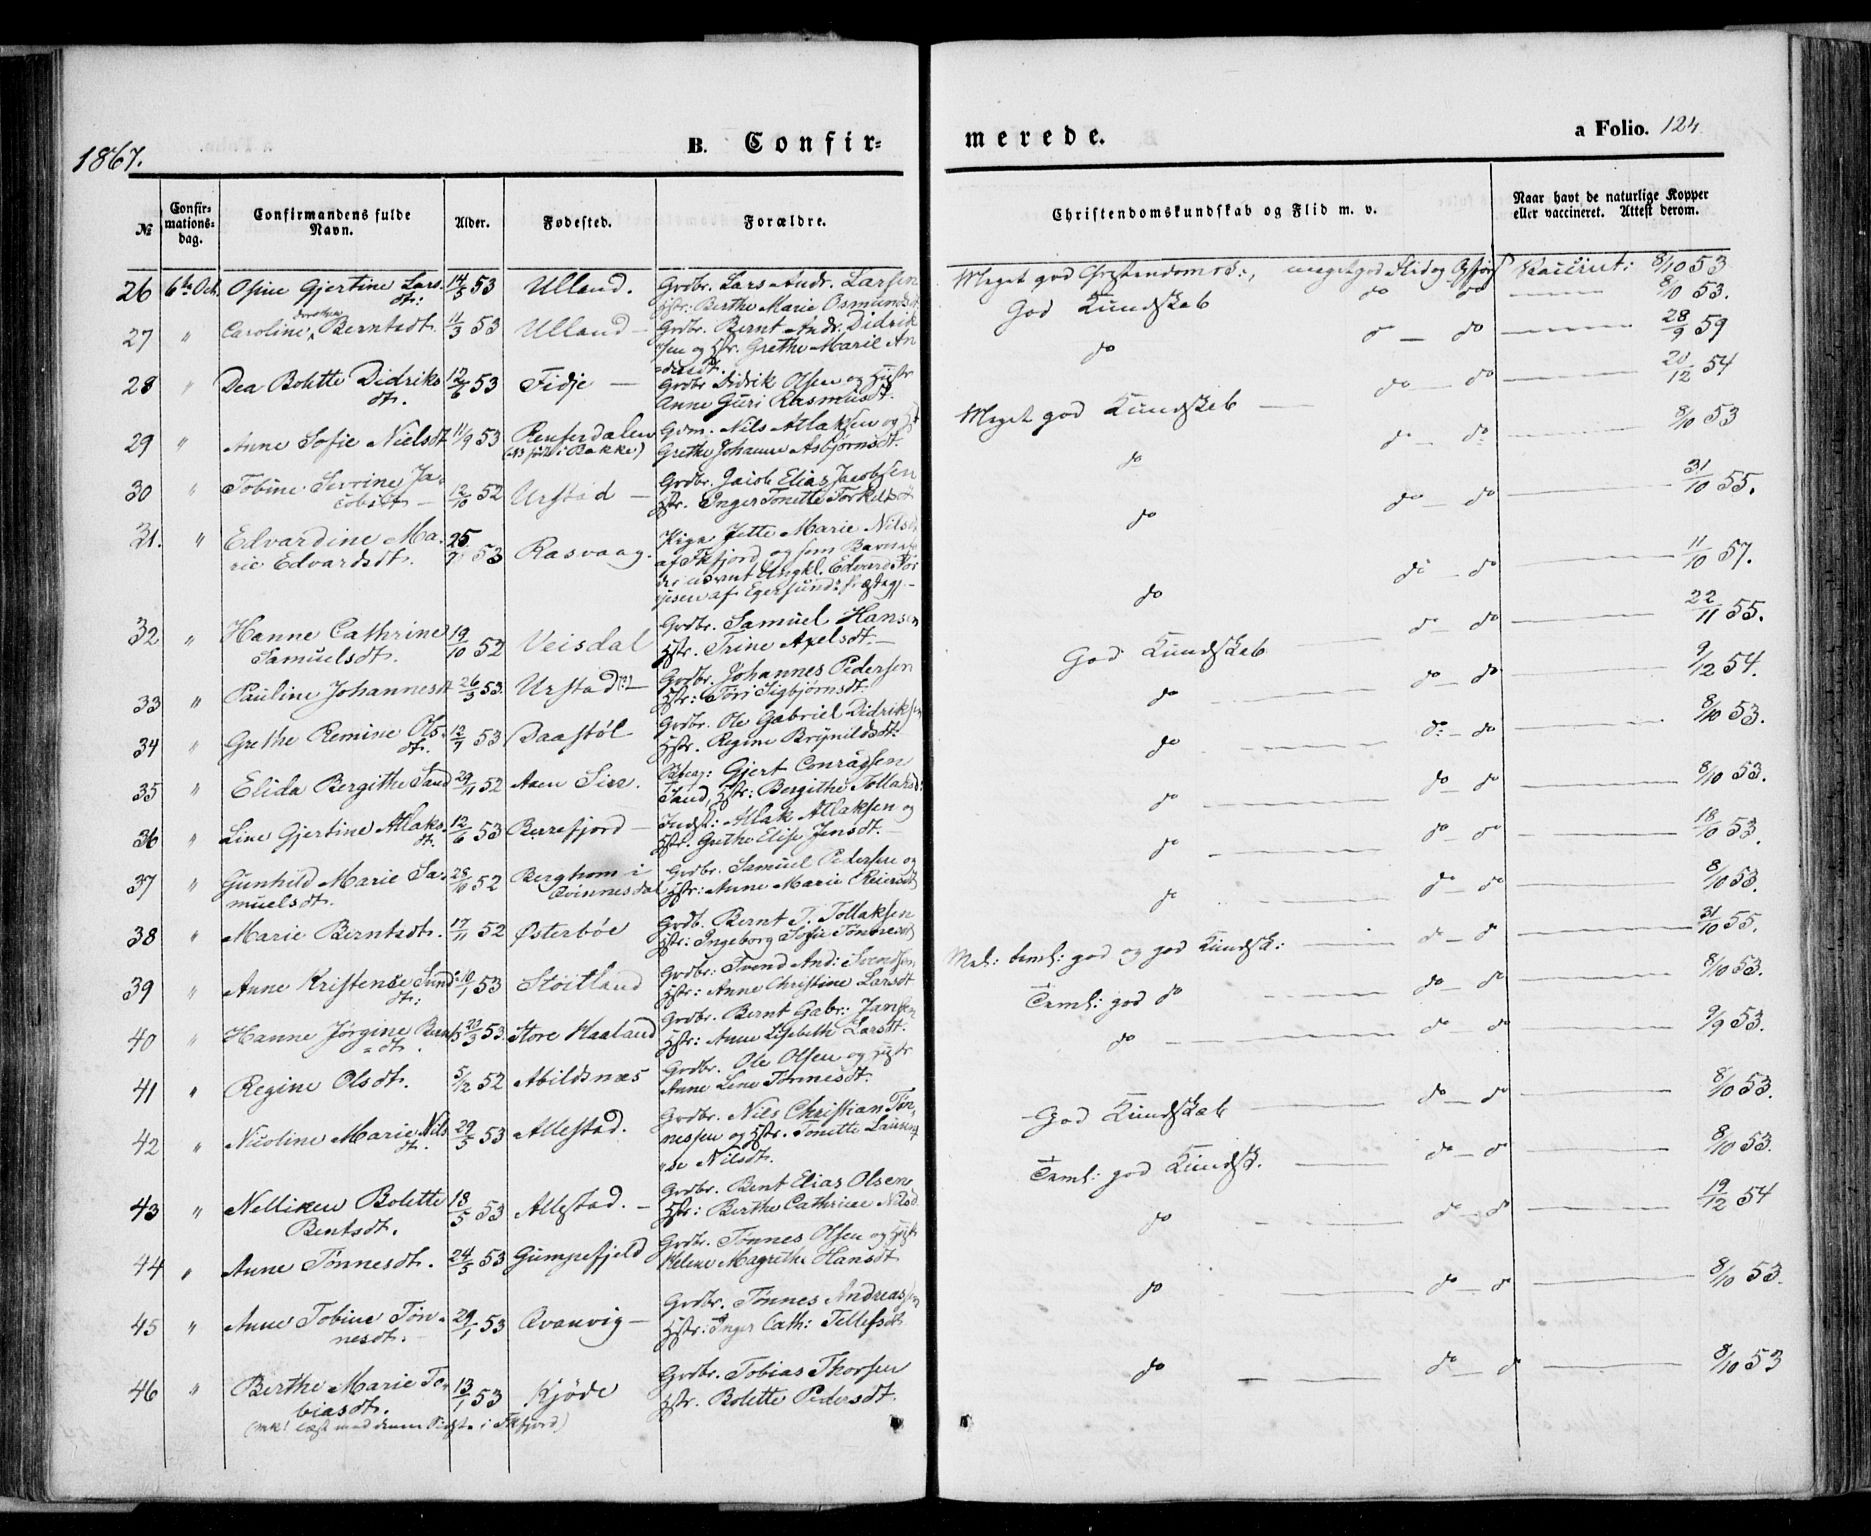 1867.
B. Confir-
merede.
a Folio. 124
№
Confir-
mations-
dag.
Confirmandens fulde
Navn.
Alder.
Fødested.
Forældre.
Christendomskundskab og Flid m. v.
Naar havt de naturlige Kopper
eller vaccineret. Attest derom.
26 6te Oct. Osine Gjertine Lars- 14/5 53 Ulland. Grdbr. Lars Andr. Larsen
dt: Hstr: Berthe Marie Osmundsdt
Meget god Christendomsk:, meget god Flid og Opførs Vaccinert: 8/10 53
27 " Caroline Dorthea Berntsdt. 11/3 53 Ulland — Grdbr. Bernt Andr. Didrik
sen og Hstr. Grethe Marie An
dr.dt.
God Kundskab do do 8/10 53.
28 " Dea Bolette Didriks 12/6 53 Fidje — Grdbr Didrik Olsen og Hustr
dt. Anne Guri Rasmusdt.
do do do 28/9 59
29 " Anne Sofie Nielsdt 11/9 53 Grm. Nils Atlaksen og H
Grethe Johanne Asbjørnsdt.
Meget god Kundskab do do 20/12 54
30 " Tobine Serine Ja- 12/10 52 Urstad — Grdbr. Jacob Elias Jacobsen
cobsdt — Hstr. Inger Tonette Torkelsdt
do do do 8/10 53
31. " Edvardine Ma- 25 53 Rasvaag. Pige Jette Marie Nilsdt
rie Edvardsdt. af Fkfjord og som Barnefa
der Ungkl. Edvard
af Egersunds Præstegj.
do do do 31/10 55.
32 " Hanne Cathrine 19/10 52 Veisdal Grdbr. Samuel Hansen
Samuelsdt. Hstr. Trine Axelsdt. —
do do do 11/10 57.
33 " Pauline Johannesdt 26/3 53. Urstad Grdbr. Johannes Pedersen
Hstr: Tori Sigbjørnsdt.
God Kundskab do do 22/11 55.
34 " Grethe Remine Ols- 12/7 53 Daastøl Grdbr. Ole Gabriel Didriksen
dt. Hstr. Regine Brynildsdt.
do do do 9/12 54.
35 " Elida Bergithe Sand 29/11 52 Aaen Sire. Gjert Conradsen
Sand, Hstr: Bergithe Tollaksd:
do do do 8/10 53.
36 " Line Gjertine Atlaks- 12/6 53 Berrefjord — Indst: Atlak Atlaksen og
dt. Hstr. Grethe Elise Jensdt. —
do do do 8/10 53.
37 " Gunhild Marie Sa- 28/10 52 Berghom i Grdbr. Samuel Pedersen og
muelsdt. Qvinnesdal Hstr: Anne Marie Reiersdt
do do do 18/10 53
38 " Marie Berntsdt. 17/11 52 Østerbøe Grdb. Bernt T. Tollaksen
Hstr: Ingeborg Sofie Tønnesdt
do do do 8/10 53.
39 " Anne Kristense Svend: 10/1 53 Støitland Grdbr. Svend And: Svendsen
dt: Hstr: Anne Christine Larsdt
Mel: teml: god og god Kundsk: do do 31/10 55.
40 " Hanne Jørgine Bernt 22/3 53. Store Haaland Grdbr. Bernt Gabr: Jansen
dt. Hstr: Anne Lisebeth Larsdt.
Teml: god do do do 8/10 53.
41 " Regine Olsdt. 5/12 52 Abildsnæs Grdbr. Ole Olsen og Hustr
Anne Lene Tønnesdt.
do do do 9/9 53.
42 " Nicoline Marie Nils 29/5 53 Allestad. Grdbr. Nils Christian Tøn-
dt. nessen og Hstr. Tonette Laurent
se Nilsdt.
God Kundskab do do 8/10 53.
43 " Nelliken Bolette 18/5 53 Allestad. — Grdbr. Bent Elias Olsen
Bentsdt. Hstr: Berthe Cathrine Nilsd
Teml: god Kundsk. do do 8/10 53.
44 " Anne Tønnesdt. 24/5 53 Gumpefjeld Grdbr. Tønnes Olsen og Hust
Helene Magrethe Hansdt
do do do 19/12 54
45 " Anne Tobine Tøn- 29/1 53 Qvanvig — Grdbr. Tønnes Andreassen
nesdt. Hstr: Inger Cath: Tellefsdt
do do do 8/10 53.
46 " Berthe Marie To- 13/1 53 Kjøde Grdbr. Tobias Thorsen
biasdt. Hstr. Bolette Pedersdt.
do do do 8/10 53
(mk! læst med denne Pige i Fkfjord)